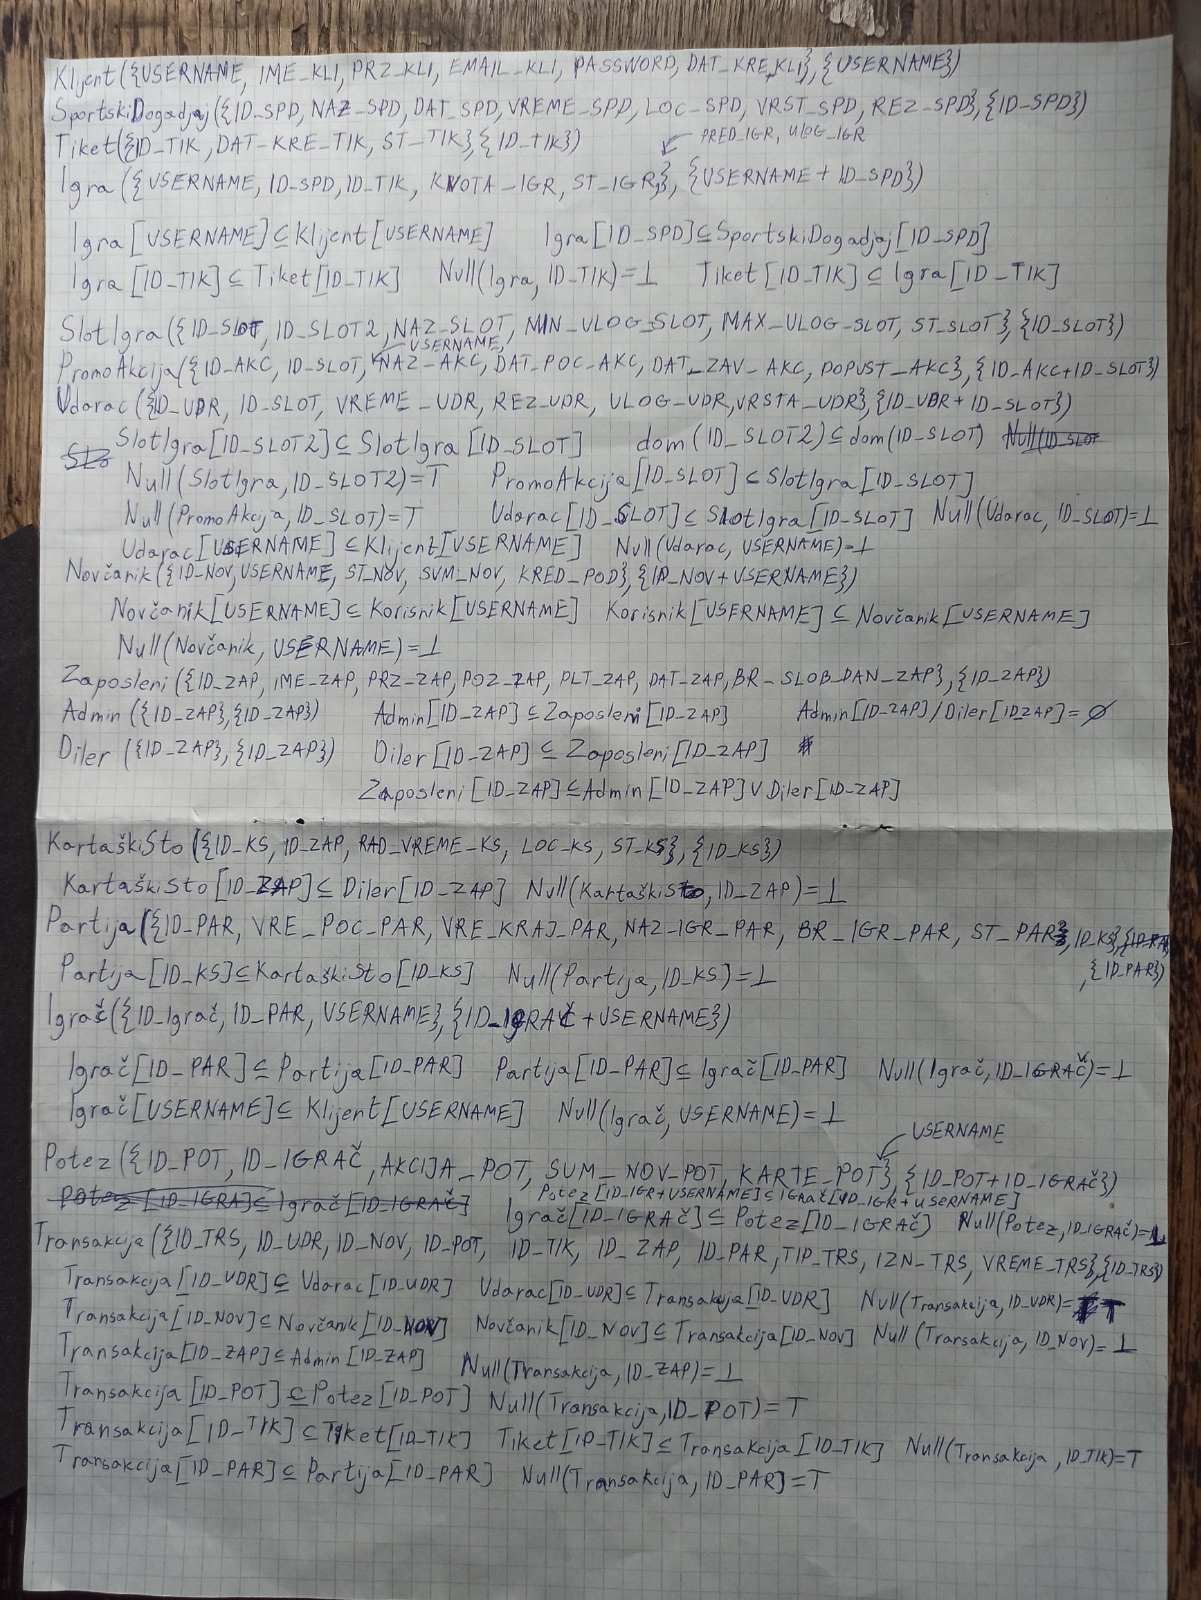 Klijent({USERNAME, IME_KLI, PRZ_KLI, EMAIL_KLI, PASSWORD, DAT_KRE_KLI}, {USERNAME})
SportskiDogadjaj({ID_SPD, NAZ_SPD, DAT_SPD, VREME_SPD, LOC_SPD, VRST_SPD, REZ_SPD},{ID_SPD})
Tiket({ID_TIK, DAT_KRE_TIK, ST_TIK},{ID_TIK})
PRED_IGR, ULOG_IGR
Igra({USERNAME, ID_SPD, ID_TIK, KVOTA_IGR, ST_IGR,}, {USERNAME + ID_SPD})
Igra[USERNAME]⊆Klijent[USERNAME] Igra[ID_SPD]⊆SportskiDogadjaj[ID_SPD]
Igra[ID_TIK]⊆Tiket[ID_TIK] Null(Igra, ID_TIK)=⊥ Tiket[ID_TIK]⊆Igra[ID_TIK]
SlotIgra({ID_SLOT, ID_SLOT2, NAZ_SLOT, MIN_ULOG_SLOT, MAX_ULOG_SLOT, ST_SLOT},{ID_SLOT})
USERNAME,
PromoAkcija({ID_AKC, ID_SLOT, NAZ_AKC, DAT_POC_AKC, DAT_ZAV_AKC, POPUST_AKC},{ID_AKC+ID_SLOT})
Udarac({ID_UDR, ID_SLOT, VREME_UDR, REZ_UDR, ULOG_UDR, VRSTA_UDR},{ID_UDR+ID_SLOT})
SlotIgra[ID_SLOT2]⊆SlotIgra[ID_SLOT] dom(ID_SLOT2)⊆dom(ID_SLOT) Null(ID_SLOT
Null(SlotIgra, ID_SLOT2)=T PromoAkcija[ID_SLOT]⊆SlotIgra[ID_SLOT]
Null(PromoAkcija, ID_SLOT)=T Udarac[ID_SLOT]⊆SlotIgra[ID_SLOT] Null(Udarac, ID_SLOT)=⊥
Udarac[USERNAME]⊆Klijent[USERNAME] Null(Udarac, USERNAME)=⊥
Novčanik({ID_NOV, USERNAME, ST_NOV, SUM_NOV, KRED_POD},{ID_NOV+USERNAME})
Novčanik[USERNAME]⊆Korisnik[USERNAME] Korisnik[USERNAME]⊆Novčanik[USERNAME]
Null(Novčanik, USERNAME)=⊥
Zaposleni({ID_ZAP, IME_ZAP, PRZ_ZAP, POZ_ZAP, PLT_ZAP, DAT_ZAP, BR_SLOB_DAN_ZAP},{ID_ZAP})
Admin({ID_ZAP},{ID_ZAP}) Admin[ID_ZAP]⊆Zaposleni[ID_ZAP] Admin[ID_ZAP]/Diler[ID_ZAP]=∅
Diler({ID_ZAP},{ID_ZAP}) Diler[ID_ZAP]⊆Zaposleni[ID_ZAP]
Zaposleni[ID_ZAP]⊆Admin[ID_ZAP]∪Diler[ID_ZAP]
KartaškiSto({ID_KS, ID_ZAP, RAD_VREME_KS, LOC_KS, ST_KS},{ID_KS})
KartaškiSto[ID_ZAP]⊆Diler[ID_ZAP] Null(KartaškiSto, ID_ZAP)=⊥
Partija({ID_PAR, VRE_POC_PAR, VRE_KRAJ_PAR, NAZ_IGR_PAR, BR_IGR_PAR, ST_PAR, ID_KS},{ID_PAR
,{ID_PAR})
Partija[ID_KS]⊆KartaškiSto[ID_KS] Null(Partija, ID_KS)=⊥
Igrač({ID_Igrač, ID_PAR, USERNAME},{ID_IGRAČ+USERNAME})
Igrač[ID_PAR]⊆Partija[ID_PAR] Partija[ID_PAR]⊆Igrač[ID_PAR] Null(Igrač, ID_IGRAČ)=⊥
Igrač[USERNAME]⊆Klijent[USERNAME] Null(Igrač, USERNAME)=⊥
USERNAME
Potez({ID_POT, ID_IGRAČ, AKCIJA_POT, SUM_NOV_POT, KARTE_POT},{ID_POT+ID_IGRAČ})
Potez[ID_IGR+USERNAME]⊆IGRAČ[ID_IGR+USERNAME]
Potez[ID_IGRA]⊆Igrač[ID_IGRAČ] Igrač[ID_IGRAČ]⊆Potez[ID_IGRAČ] Null(Potez, ID_IGRAČ)=⊥
Transakcija({ID_TRS, ID_UDR, ID_NOV, ID_POT, ID_TIK, ID_ZAP, ID_PAR, TIP_TRS, IZN_TRS, VREME_TRS},{ID_TRS})
Transakcija[ID_UDR]⊆Udarac[ID_UDR] Udarac[ID_UDR]⊆Transakcija[ID_UDR] Null(Transakcija, ID_UDR)=T
Transakcija[ID_NOV]⊆Novčanik[ID_NOV] Novčanik[ID_NOV]⊆Transakcija[ID_NOV] Null(Transakcija, ID_NOV)=⊥
Transakcija[ID_ZAP]⊆Admin[ID_ZAP] Null(Transakcija, ID_ZAP)=⊥
Transakcija[ID_POT]⊆Potez[ID_POT] Null(Transakcija, ID_POT)=T
Transakcija[ID_TIK]⊆Tiket[ID_TIK] Tiket[ID_TIK]⊆Transakcija[ID_TIK] Null(Transakcija, ID_TIK)=T
Transakcija[ID_PAR]⊆Partija[ID_PAR] Null(Transakcija, ID_PAR]=T